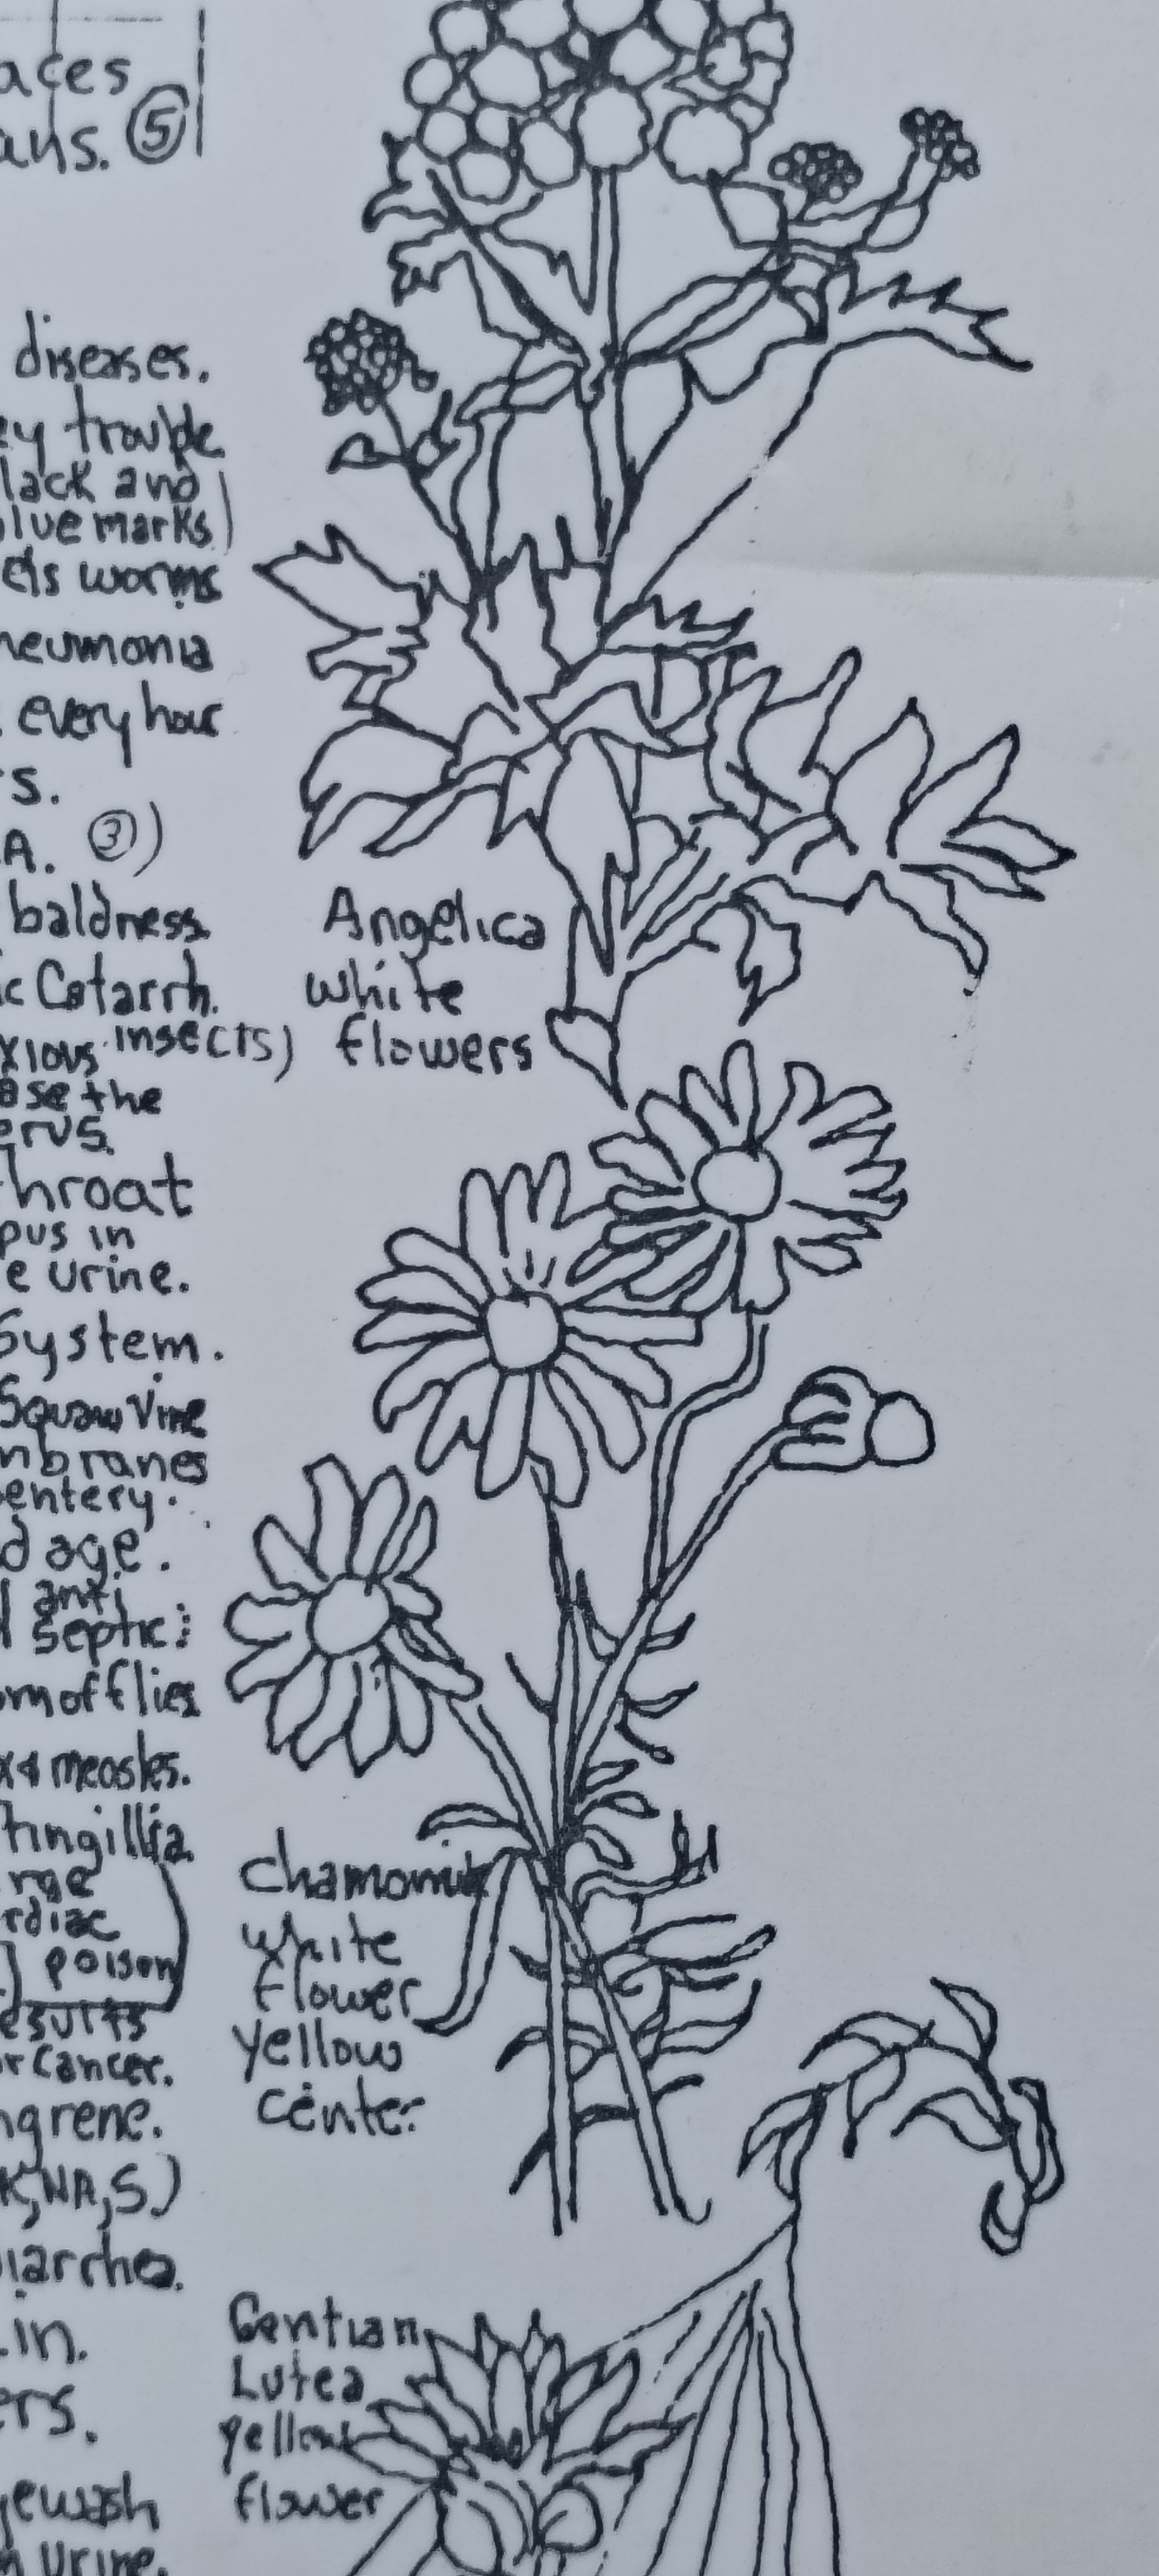 aces
ans. ⑤
diseases.
ey trouble
lack and
blue marks)
els worms
neumonia
every hour
rs.
A. ③)
baldness
ic Catarrh.
xious insects)
ase the
erus.
throat
pus in
e urine.
System.
Squaw Vine
mbranes
entery.
d age.
l anti
septic;
om of flies
x & measles.
fingillia
rge
rdiac
] poison
esults
or Cancer.
ngrene.
K, NA, S.)
iarrhea.
in.
ers.
yewash
n urine.
Angelica
white
flowers
Chamomile
white
flower
yellow
center
Gentian
Lutea
yellow
flower